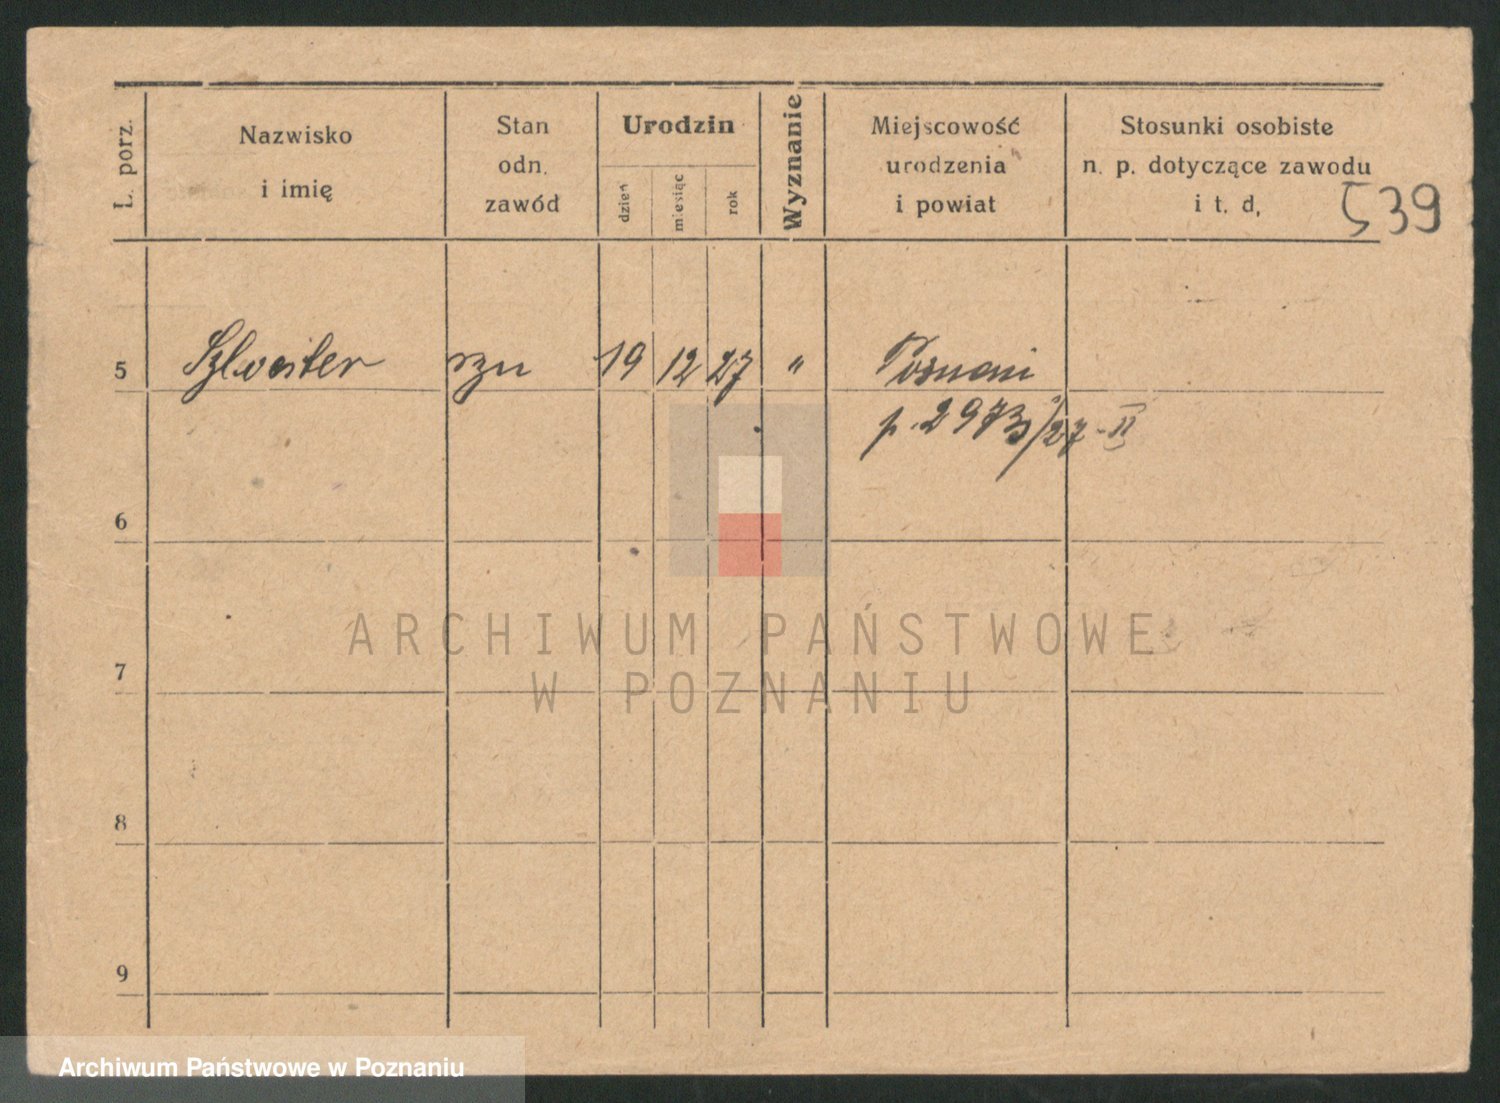 L. porz.
Nazwisko
i imię
Stan
odn.
zawód
Urodzin
dzień
miesiąc
rok
Wyznanie
Miejscowość
urodzenia
i powiat
Stosunki osobiste
n. p. dotyczące zawodu
i t. d,
539
5 Sylwester rzu 19 12 27 " Poznań
p. 2973/27-II
6
7
8
9
ARCHIWUM PAŃSTWOWE
W POZNANIU
Archiwum Państwowe w Poznaniu